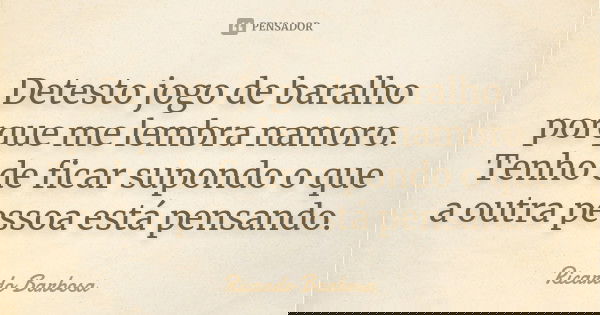 PENSADOR
Detesto jogo de baralho
porque me lembra namoro.
Tenho de ficar supondo o que
a outra pessoa está pensando.
Ricardo Barbosa